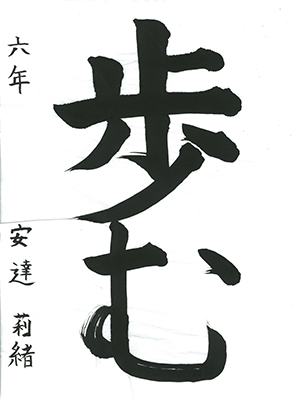 歩む
六年 安達 莉緒